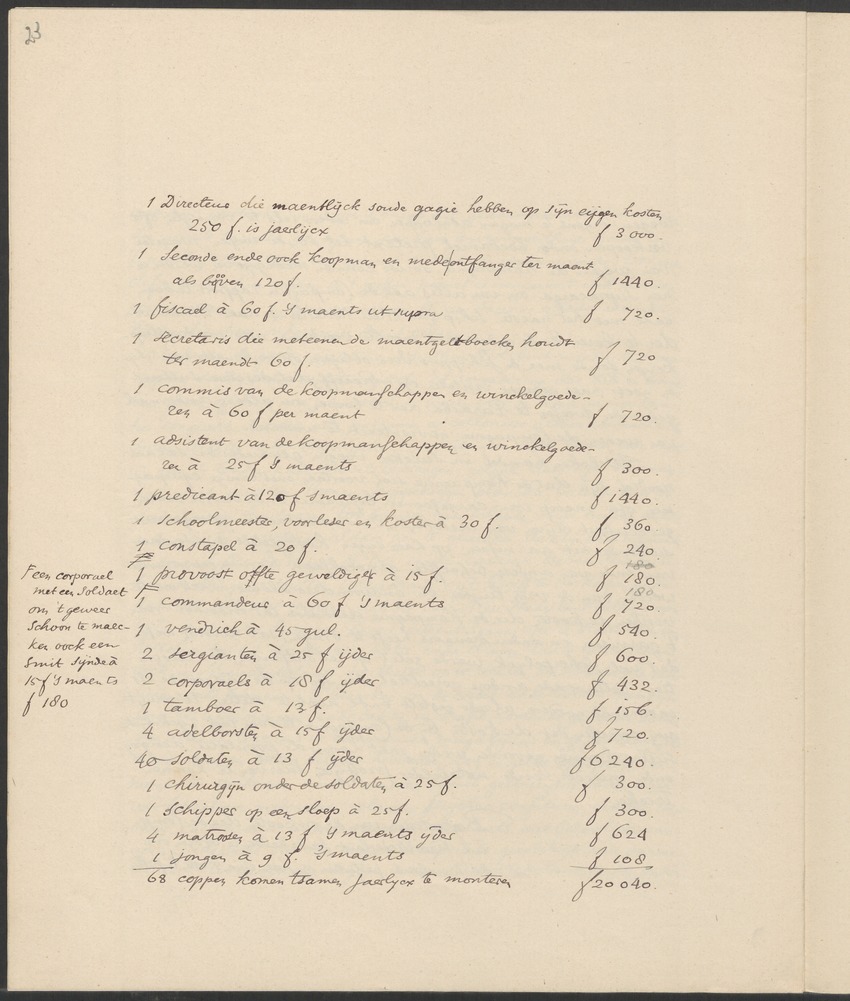 23
1 Directeur die maentlijck soude gagie hebben op sijn eijgen kosten
250 f. is jaerlijcx f 3000.
1 seconde ende oock koopman en medeontfanger ter maent
als boven 120 f. f 1440.
1 fiscael à 60 f. 's maents ut supra f 720.
1 secretaris die meteenen de maentgeltboecken houdt
ter maendt 60 f. f 720
1 commis van de koopmanschappen en winckelgoede-
ren à 60 f per maent f 720.
1 adsistent van de koopmanschappen en winckelgoede-
ren à 25 f 's maents f 300.
1 predicant à 120 f 's maents f 1440.
1 schoolmeester, voorleser en koster à 30 f. f 360.
1 constapel à 20 f. f 240.
180
F 1 provoost offte geweldiger à 15 f. f 180.
180
F
1 commandeur à 60 f 's maents f 720.
1 vendrich à 45 gul. f 540.
2 sergianten à 25 f ijder f 600.
2 corporaels à 18 f ijder f 432.
1 tamboer à 13 f. f 156.
4 adelborsten à 15 f ijder f 720.
40 soldaten à 13 f ijder f 6240.
1 chirurgijn onder de soldaten à 25 f. f 300.
1 schipper op een sloep à 25 f. f 300.
4 matrosen à 13 f 's maents ijder f 624
1 jongen à 9 f. 's maents f 108
68 coppen komen tsamen jaerlijcx te monteren f 20040.
F een corporael
met een soldaet
om 't geweer
schoon te maec-
ken oock een
smit sijnde à
15 f 's maents
f 180